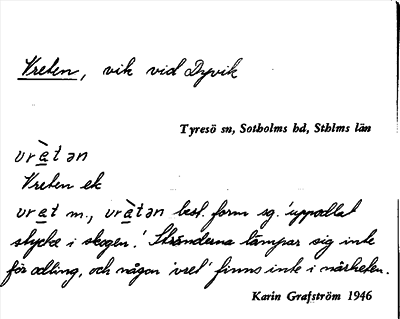 Vreten, vik vid Dyvik
Tyresö sn, Sotholms hd, Sthlms län
vrà̱tən
Vreten ek
vra̱t m., vrà̱tən best. form sg. 'uppodlat
stycke i skogen.' Stränderna lämpar sig inte
för odling, och någon 'vret' finns inte i närheten.
Karin Grafström 1946